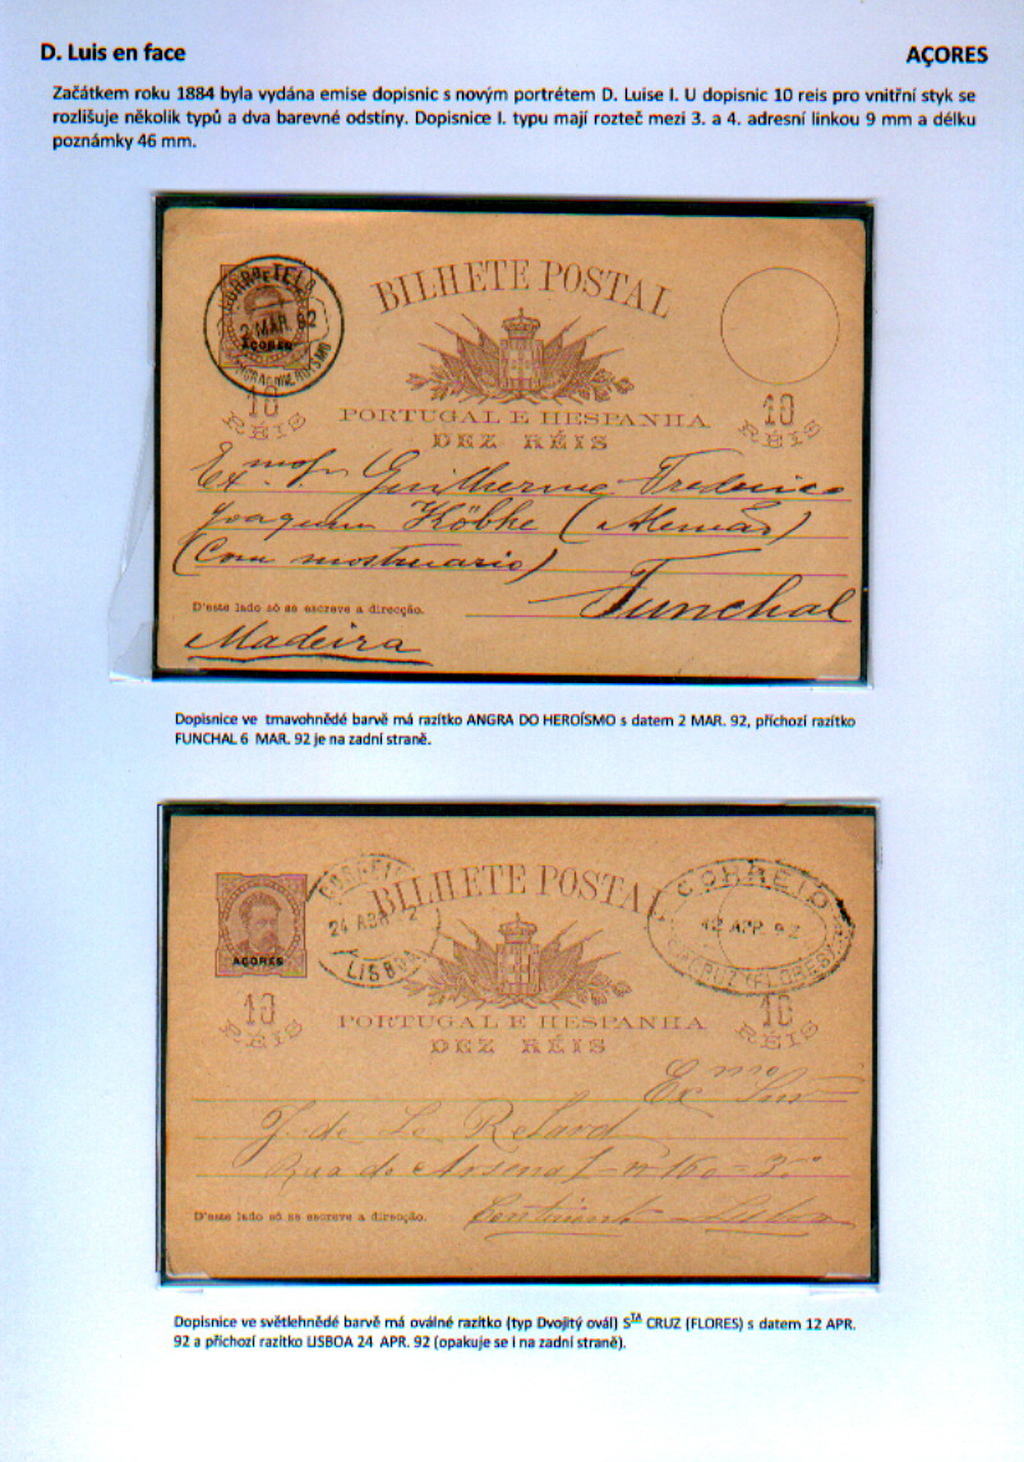 D. Luis en face
AÇORES
Začátkem roku 1884 byla vydána emise dopisnic s novým portrétem D. Luise I. U dopisnic 10 reis pro vnitřní styk se
rozlišuje několik typů a dva barevné odstíny. Dopisnice I. typu mají rozteč mezi 3. a 4. adresní linkou 9 mm a délku
poznámky 46 mm.
CORRO E TELO
2 MAR. 92
AÇORES
ANGRA DO HEROISMO
BILHETE POSTAL
10
RÉIS
PORTUGAL E HESPANHA
DEZ RÉIS
10
RÉIS
Ex.mo Guilherme Frederico
Joaquim Köbke (Alemão)
(Com mostruario)
D'este lado só se escreve a direcção.
Funchal
Madeira
Dopisnice ve tmavohnědé barvě má razítko ANGRA DO HEROÍSMO s datem 2 MAR. 92, příchozí razítko
FUNCHAL 6 MAR. 92 je na zadní straně.
AÇORES
CORREIO
24 ABR 2
LISBOA
BILHETE POSTAL
CORREIO
12 APR. 92
CRUZ (FLORES)
10
RÉIS
PORTUGAL E HESPANHA
DEZ RÉIS
10
RÉIS
Exmo Snr
J. de Le
Rua do Arsenal - nº 160 = 3.º
D'este lado só se escreve a direcção.
Continente Lisboa
Dopisnice ve světlehnědé barvě má oválné razítko (typ Dvojitý ovál) STA CRUZ (FLORES) s datem 12 APR.
92 a příchozí razítko LISBOA 24 APR. 92 (opakuje se i na zadní straně).